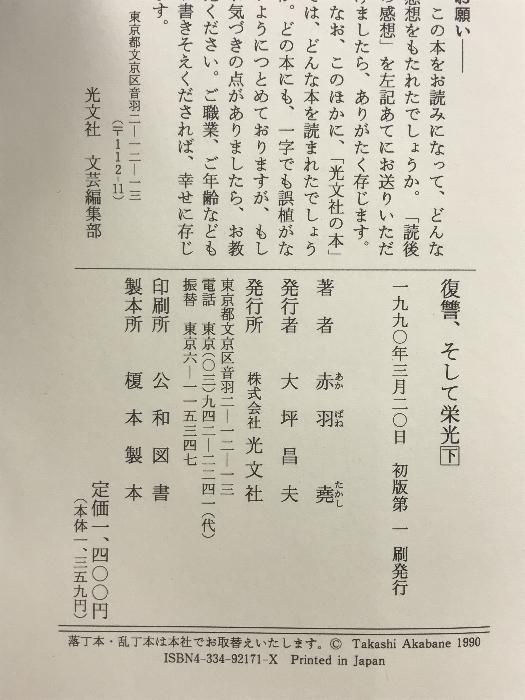 お願い――
この本をお読みになって、どんな
感想をもたれたでしょうか。「読後
の感想」を左記あてにお送りいただ
けましたら、ありがたく存じます。
なお、このほかに、「光文社の本」
では、どんな本を読まれたでしょう
か。どの本にも、一字でも誤植がな
いようにつとめておりますが、もし
お気づきの点がありましたら、お教
えください。ご職業、ご年齢なども
お書きそえくだされば、幸せに存じ
ます。
東京都文京区音羽二―一二―一三
(〒112-11)
光文社 文芸編集部
復讐、そして栄光 下
一九九〇年三月二〇日 初版第一刷発行
著者 赤羽堯
あか ばね たかし
発行者 大坪昌夫
発行所 株式会社 光文社
東京都文京区音羽二―一二―一三
電話 東京(〇三)九四二―二二四一(代)
振替 東京六―一一五三四七
印刷所 公和図書
製本所 榎本製本
定価一、四〇〇円
(本体一、三五九円)
落丁本・乱丁本は本社でお取替えいたします。© Takashi Akabane 1990
ISBN4-334-92171-X Printed in Japan